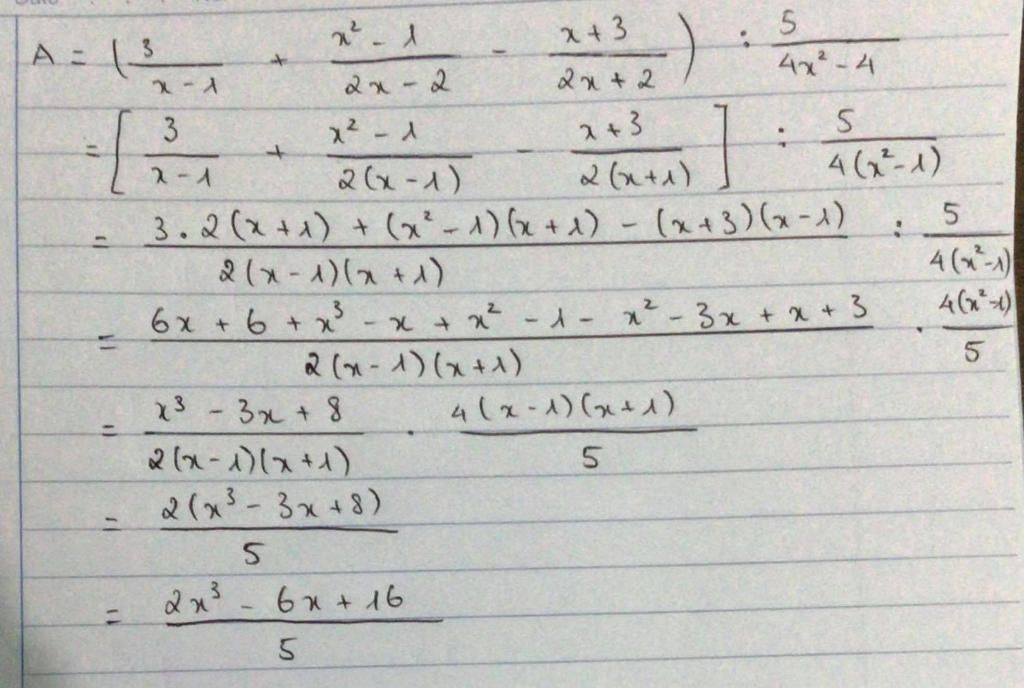 A = (3/(x-1) + (x²-1)/(2x-2) - (x+3)/(2x+2)) : 5/(4x²-4)
= [3/(x-1) + (x²-1)/(2(x-1)) - (x+3)/(2(x+1))] : 5/(4(x²-1))
= (3.2(x+1) + (x²-1)(x+1) - (x+3)(x-1))/(2(x-1)(x+1)) : 5/(4(x²-1))
= (6x + 6 + x³ - x + x² - 1 - x² - 3x + x + 3)/(2(x-1)(x+1)) . 4(x²-1)/5
= (x³ - 3x + 8)/(2(x-1)(x+1)) . 4(x-1)(x+1)/5
= 2(x³ - 3x + 8)/5
= (2x³ - 6x + 16)/5